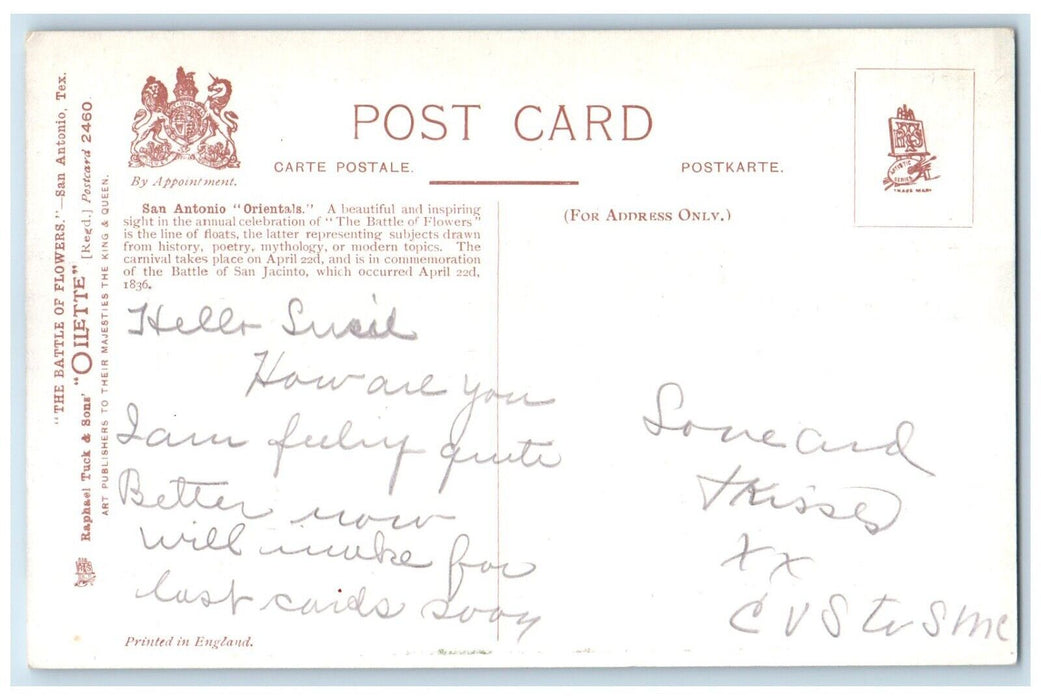 "THE BATTLE OF FLOWERS."—San Antonio, Tex.
Raphael Tuck & Sons' "OILETTE" [Regd.] Postcard 2460.
ART PUBLISHERS TO THEIR MAJESTIES THE KING & QUEEN.
By Appointment.
POST CARD
CARTE POSTALE.
POSTKARTE.
San Antonio "Orientals." A beautiful and inspiring
sight in the annual celebration of "The Battle of Flowers"
is the line of floats, the latter representing subjects drawn
from history, poetry, mythology, or modern topics. The
carnival takes place on April 22d, and is in commemoration
of the Battle of San Jacinto, which occurred April 22d,
1836.
(FOR ADDRESS ONLY.)
ARTISTIC
SERIES
TRADE MARK
Hello
How are you
I am feeling quite
Better now
will make for
last cards soon
Love and
+ Kisses
x x
C V S to S Mc
Printed in England.